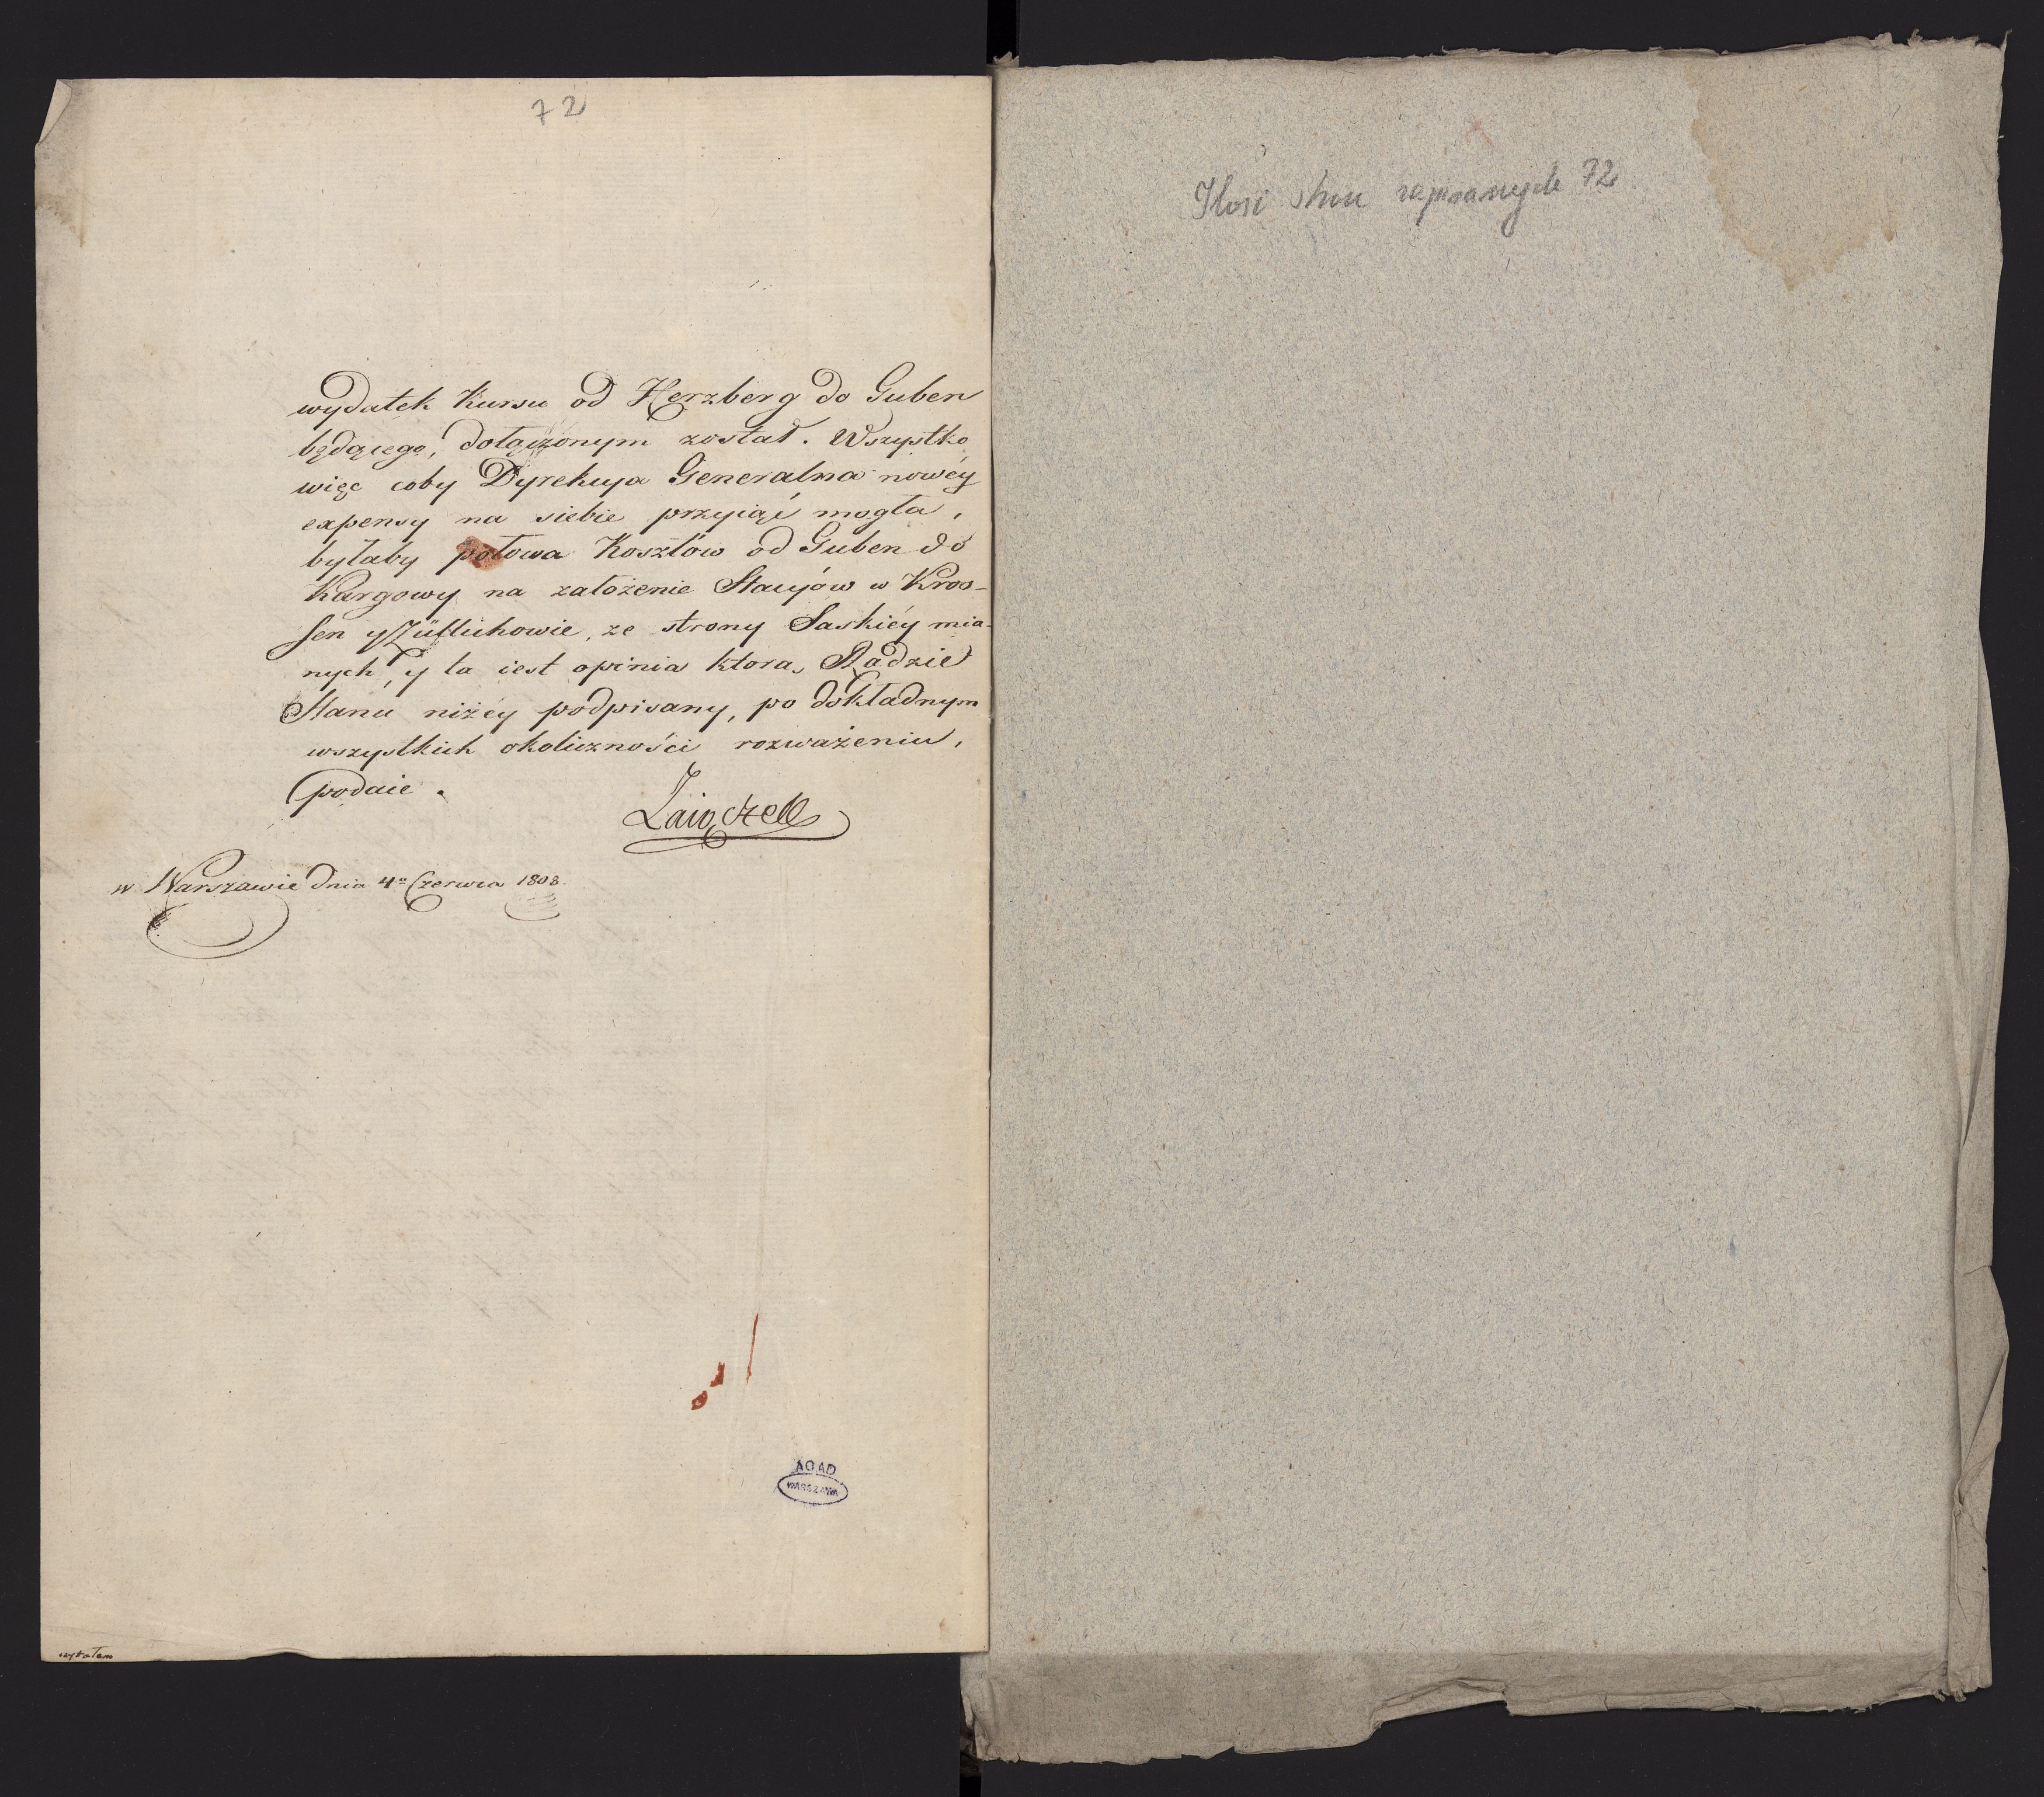 72
wydatek Kursu od Herzberg do Guben
będącego, dołączonym został. Wszystko
więc coby Dyrekcya Generalna nowéy
expensy na siebie przyiąć mogła,
byłaby połowa Kosztów od Guben do
Kargowy na założenie Stacyów w Kros-
sen y Züllichowie, ze strony Saskiéy mia-
nych, y ta iest opinia ktorą Radzie
Stanu niżéy podpisany, po dokładnym
wszystkich okoliczności rozważeniu,
podaie.
Zaionczek
w Warszawie dnia 4º Czerwca 1808.
AGAD
WARSZAWA
czytałem
Ilość stron zapisanych 72